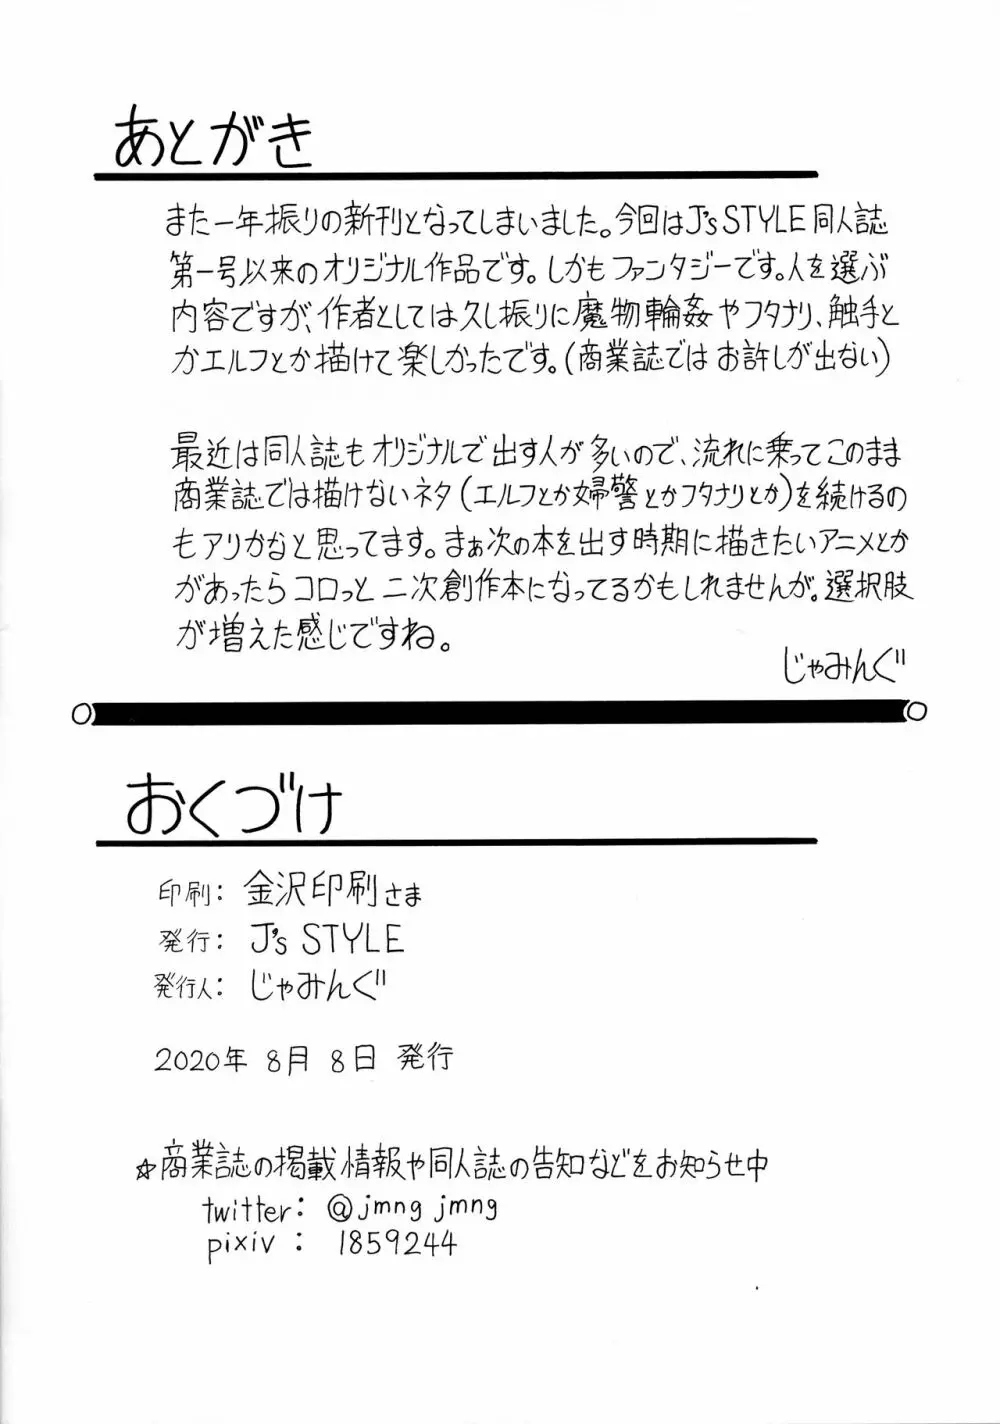 あとがき
また一年振りの新刊となってしまいました。今回はJ's STYLE同人誌
第一号以来のオリジナル作品です。しかもファンタジーです。人を選ぶ
内容ですが、作者としては久し振りに魔物輪姦やフタナリ、触手と
かエルフとか描けて楽しかったです。(商業誌ではお許しが出ない)
最近は同人誌もオリジナルで出す人が多いので、流れに乗ってこのまま
商業誌では描けないネタ(エルフとか婦警とかフタナリとか)を続けるの
もアリかなと思ってます。まぁ次の本を出す時期に描きたいアニメとか
があったらコロっと二次創作本になってるかもしれませんが。選択肢
が増えた感じですね。
じゃみんぐ
おくづけ
印刷: 金沢印刷さま
発行: J's STYLE
発行人: じゃみんぐ
2020年 8月 8日 発行
☆商業誌の掲載情報や同人誌の告知などをお知らせ中
twitter: @jmng jmng
pixiv : 1859244